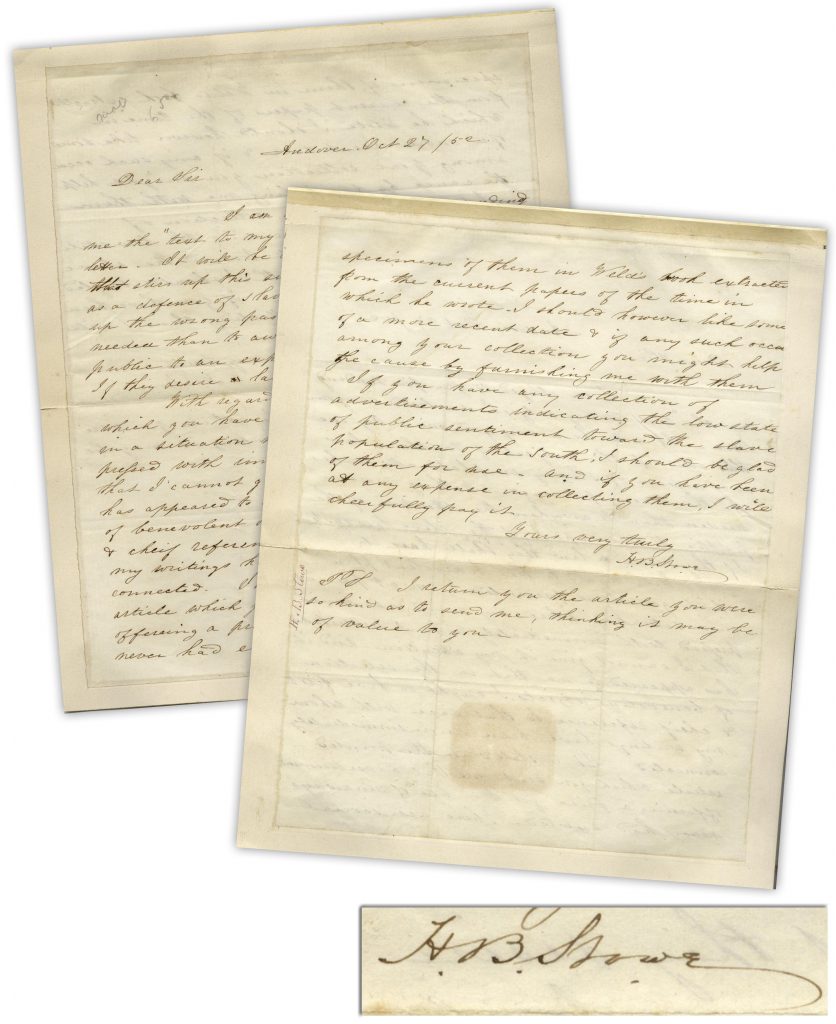 Andover Oct 27 /52
Dear Sir
I am
me the "text to my
letter. It will be
that stirs up this
as a defence of Slav
up the wrong pas
needed than to
public to an exp
If they desire a la
With regard
which you have
in a situation
pressed with im
that I cannot g
has appeared to
of benevolent
& cheif referen
my writings h
connected. I
article which
offering a pr
never had e
specimens of them in Welds book extracted
from the current papers of the time in
which he wrote. I should however like some
of a more recent date & if any such occur
among your collection you might help
the cause by furnishing me with them
If you have any collection of
advertisements indicating the low state
of public sentiment toward the slave
population of the South, I should be glad
of them for use - and if you have been
at any expense in collecting them, I will
cheerfully pay it.
Yours very truly
H.B. Stowe
P.S. I return you the article you were
so kind as to send me, thinking it may be
of value to you -
H. B. Stowe
H. B. Stowe